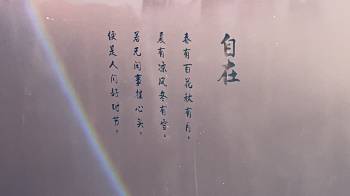 自在
春有百花秋有月，
夏有凉风冬有雪，
若无闲事挂心头，
便是人间好时节，